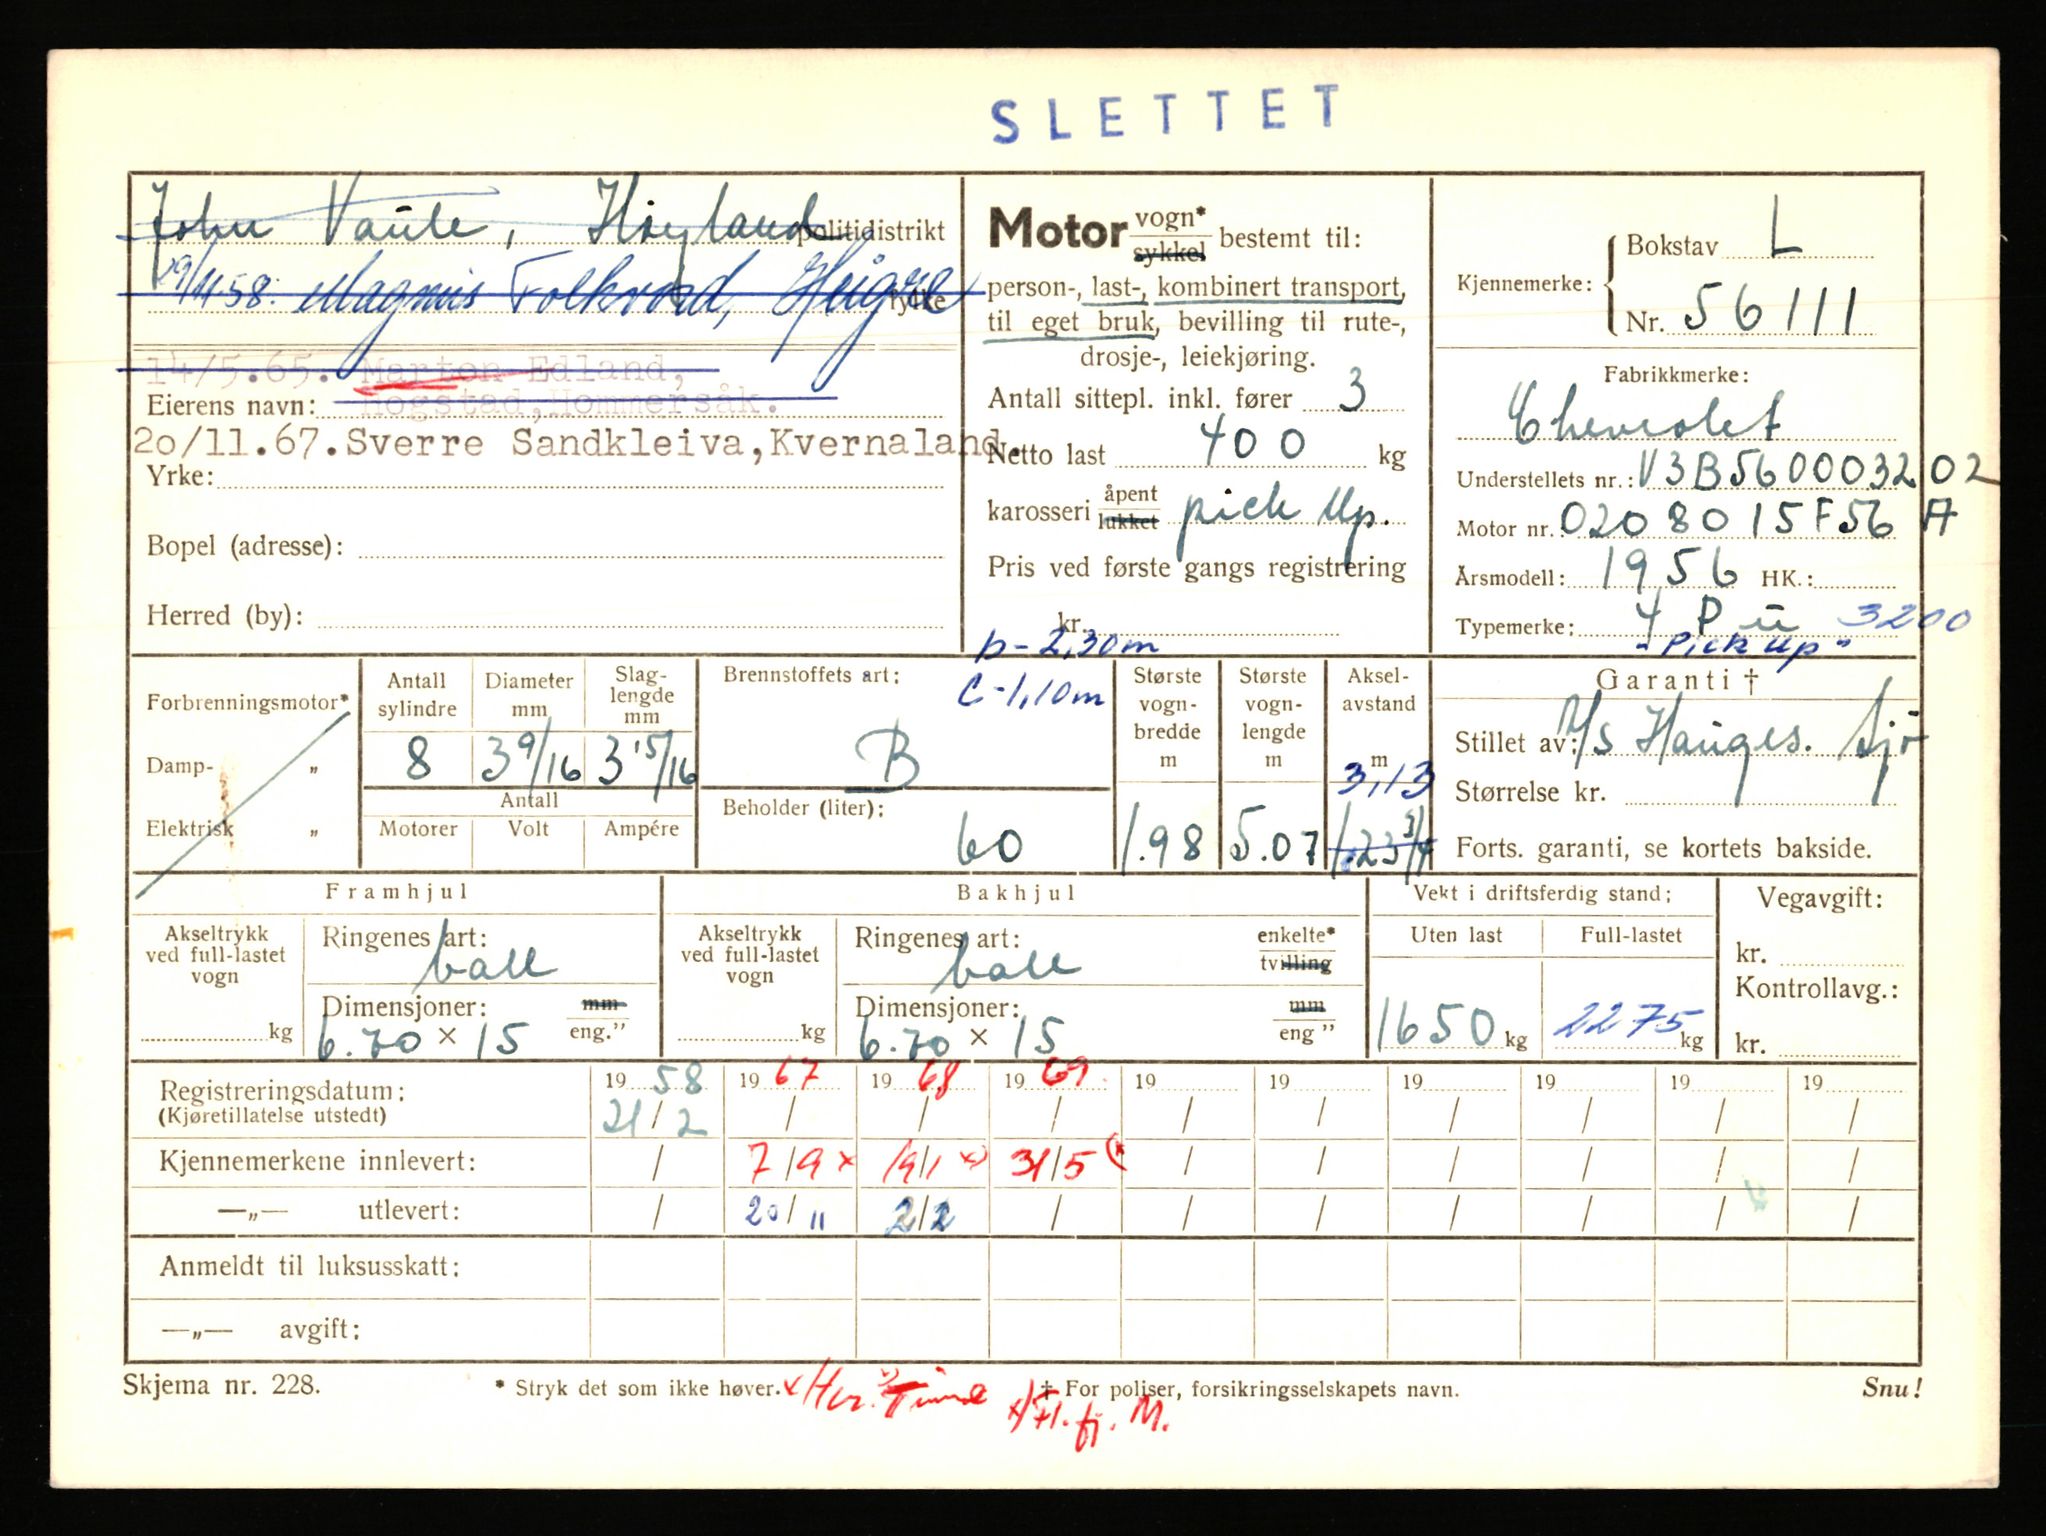 SLETTET
John Vaule, Høyland politidistrikt
29/11.58. Magnus Folkvord, Heigre fylke
14/5.65. Marton Edland,
Eierens navn: Hogstad, Hommersåk.
20/11.67. Sverre Sandkleiva, Kvernaland.
Yrke:
Bopel (adresse):
Herred (by):
Motor vogn* sykkel bestemt til:
person-, last-, kombinert transport,
til eget bruk, bevilling til rute-,
drosje-, leiekjøring.
Antall sittepl. inkl. fører 3
Netto last 400 kg
karosseri åpent lukket pick Up.
Pris ved første gangs registrering
kr.
Kjennemerke: Bokstav L
Nr. 56111
Fabrikkmerke:
Chevrolet
Understellets nr.: V3B560003202
Motor nr.: 0208015F56 A
Årsmodell: 1956 HK.:
Typemerke: 4 P u 3200
"Pick up"
b - 2,30m
c - 1,10m
Forbrenningsmotor*
Damp- „
Elektrisk „
Antall sylindre 8
Diameter mm 3 9/16
Slag-lengde mm 3 15/16
Antall
Motorer Volt Ampére
Brennstoffets art: B
Beholder (liter): 60
Største vogn-bredde m 1.98
Største vogn-lengde m 5.07
Aksel-avstand m 3,13
1.23 3/4
Garanti †
Stillet av: A/S Hauges. Sjø
Størrelse kr.
Forts. garanti, se kortets bakside.
Framhjul
Akseltrykk ved full-lastet vogn kg
Ringenes art: ball
Dimensjoner: mm eng."
6.70 × 15
Bakhjul
Akseltrykk ved full-lastet vogn kg
Ringenes art: ball enkelte* tvilling
Dimensjoner: mm eng "
6.70 × 15
Vekt i driftsferdig stand:
Uten last 1650 kg
Full-lastet 2275 kg
Vegavgift:
kr.
Kontrollavg.:
kr.
Registreringsdatum: 1958 1967 1968 1969 19 19 19 19 19 19
(Kjøretillatelse utstedt) 21/2 / / / / / / / / /
Kjennemerkene innlevert: / 7/9 x 19/1 x) 31/5 (* / / / / / /
—„— utlevert: / 20/11 2/2 / / / / / / /
Anmeldt til luksusskatt:
—„— avgift:
Skjema nr. 228.
* Stryk det som ikke høver.
† For poliser, forsikringsselskapets navn.
Snu!
x) Fl. fj. M.